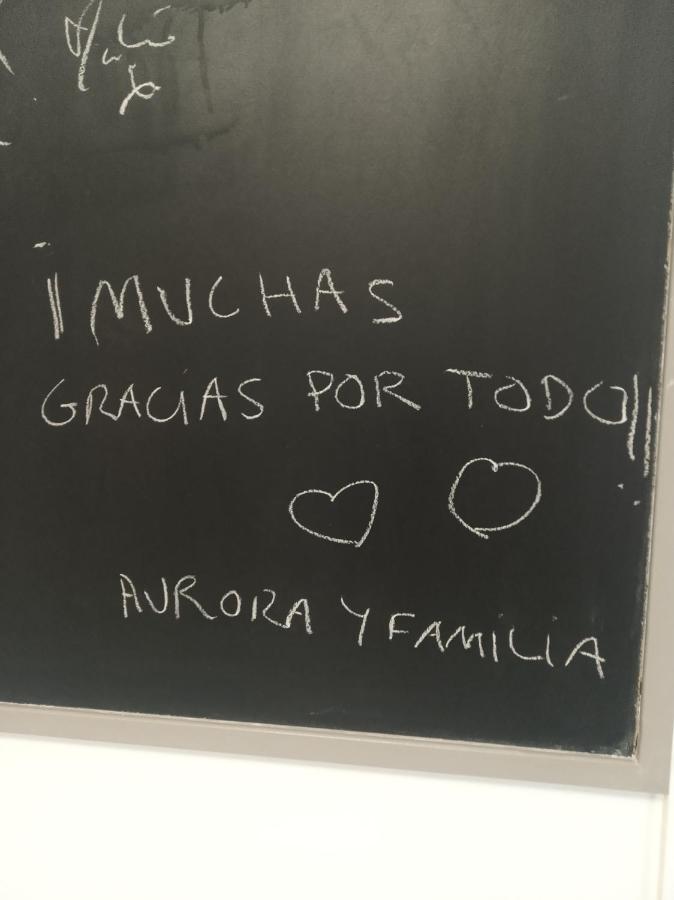 ¡¡MUCHAS
GRACIAS POR TODO!!
AURORA Y FAMILIA